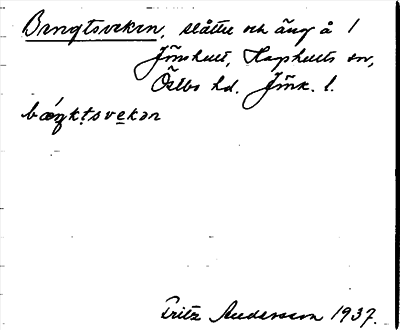 Bengtsveken, slåtte och äng å 1
Jönshult, Kaphults sn,
Östbo hd. Jönk. l.
bæŋktsvekən
Fritz Andersson 1937.